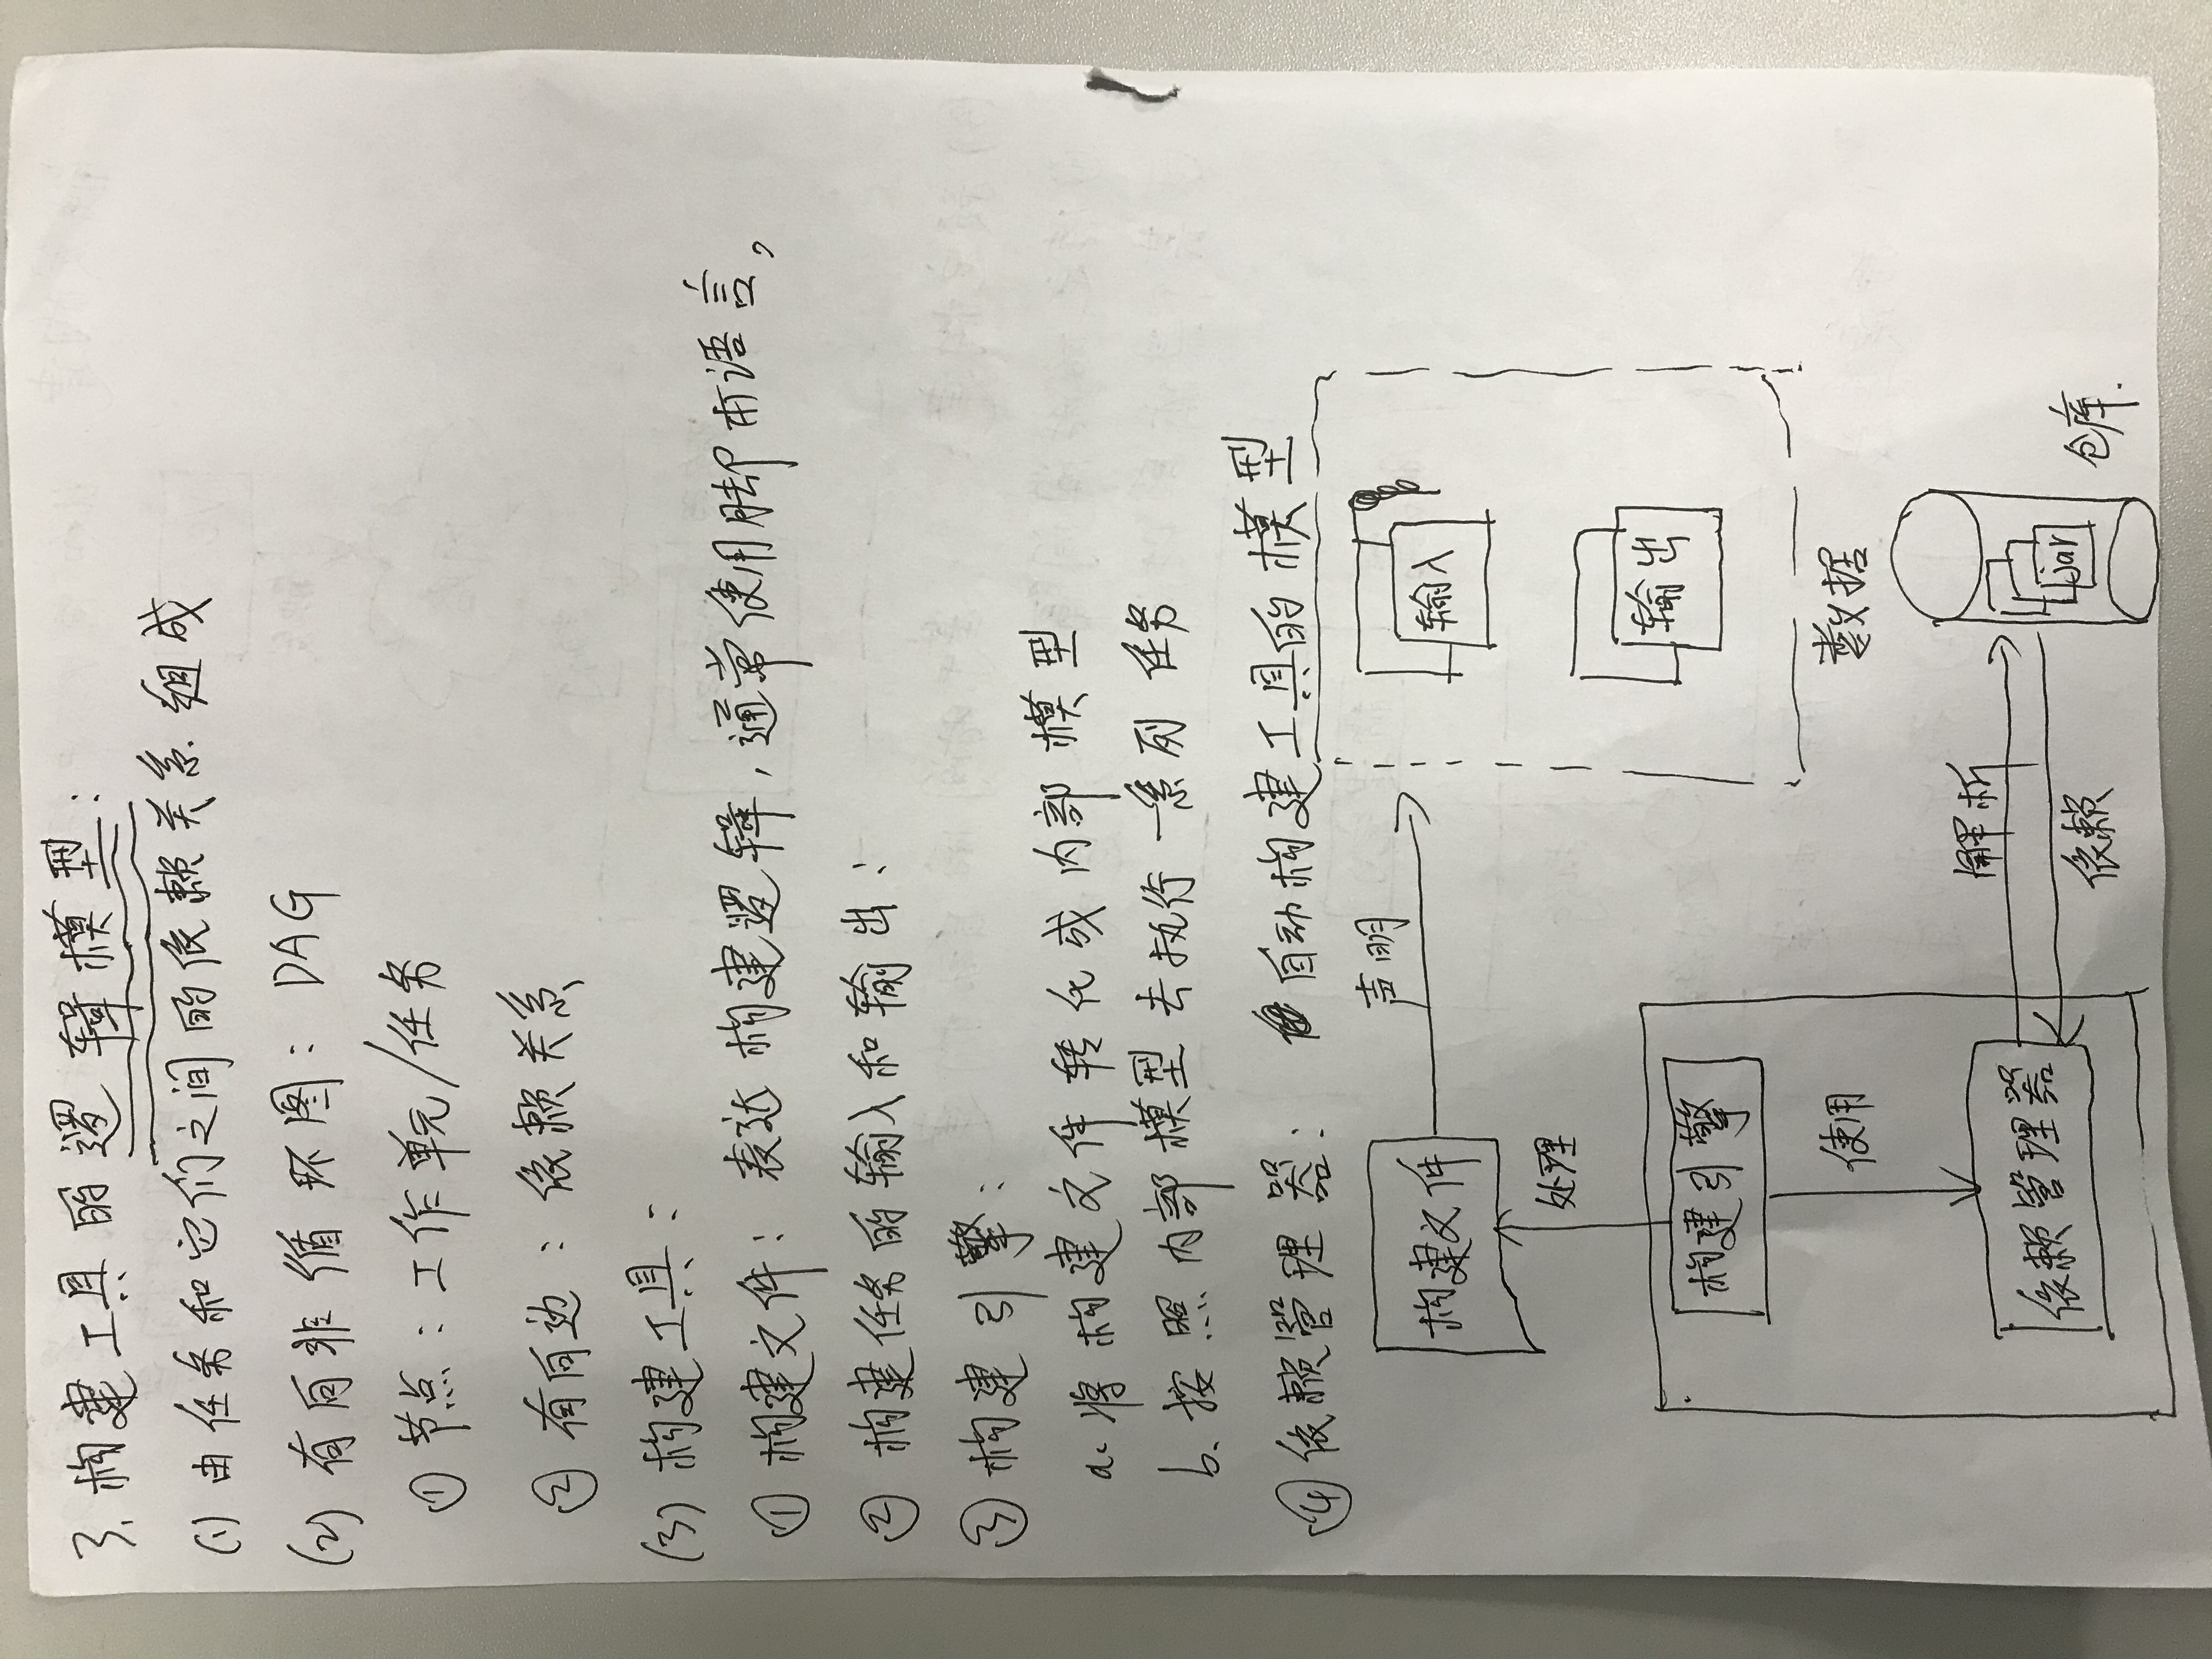 3. 构建工具的逻辑模型:
(1) 由任务和它们之间的依赖关系组成
(2) 有向非循环图: DAG
① 节点: 工作单元/任务
② 有向边: 依赖关系
(3) 构建工具:
① 构建文件: 表达构建逻辑,通常使用脚本语言。
② 构建任务的输入和输出:
③ 构建引擎:
a. 将构建文件转化成内部模型
b. 按照内部模型去执行一系列任务
④ 依赖管理器: 自动构建工具的模型
声明
构建文件
输入
处理
输出
构建引擎
使用
数据
解析
依赖管理器
jar
依赖
仓库.